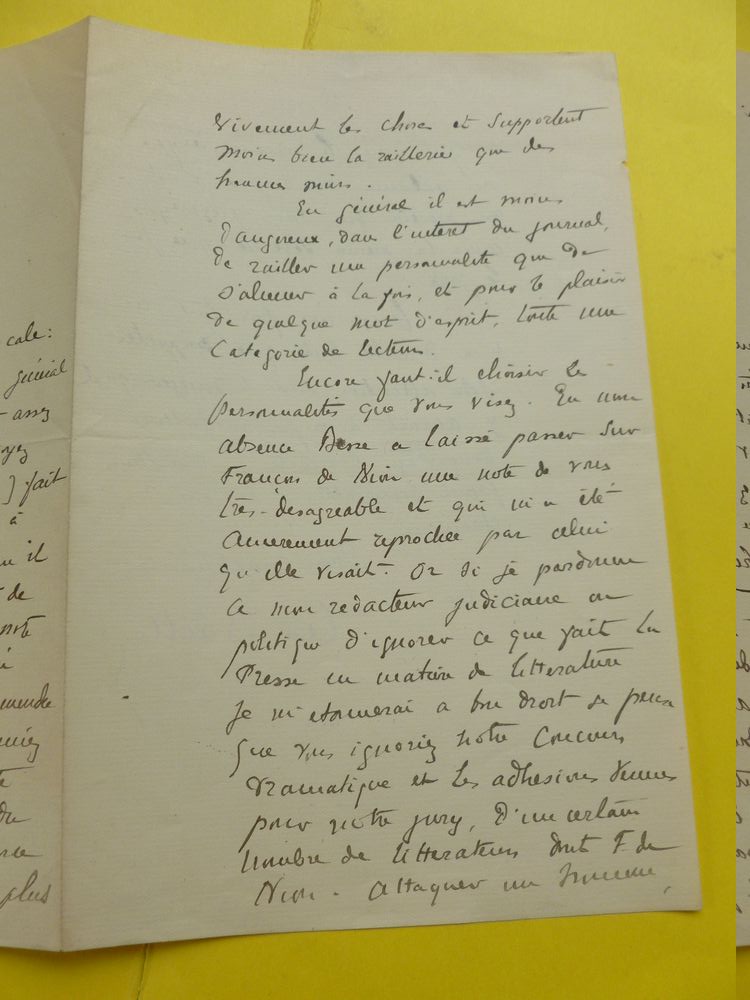 vivement les choses et supportent
moins bien la raillerie que des
hommes mûrs.
En général il est moins
dangereux, dans l'interet du journal,
de railler une personnalité que de
s'aliener à la fois, et pour le plaisir
de quelque mot d'esprit, toute une
Categorie de lecteurs.
Encore faut-il choisir les
personnalités que vous visez. En mon
absence Besse a laissé passer sur
François de Nion une note de vous
très-désagreable et qui m'a été
amerement reprochée par celui
qu'elle visait. Or si je pardonne
a mon redacteur judiciaire ou
politique d'ignorer ce que fait la
Presse en matière de litterature
je m'etonnerai a bon droit
que vous ignoriez notre Concours
dramatique et les adhesions venues
pour notre jury, d'un certain
nombre de litterateurs dont F. de
Nion. Attaquer un homme,
cale:
général
assez
] fait
à
il
de
note
du
plus